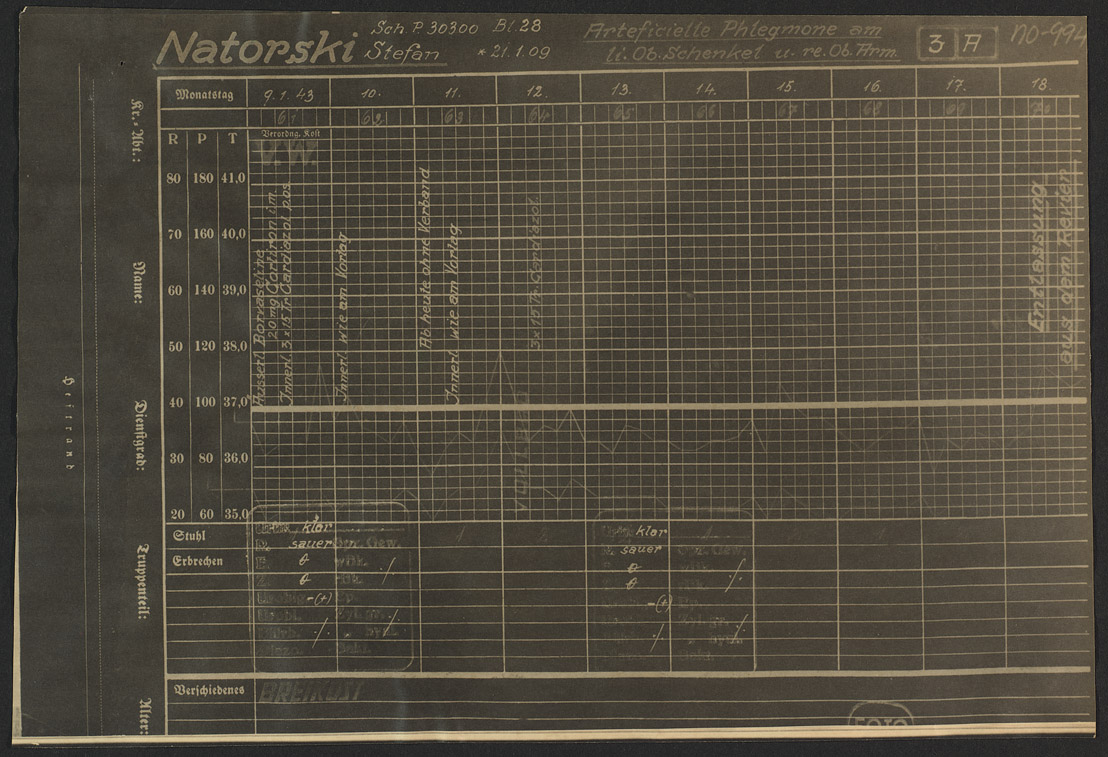 Natorski
Stefan
Sch. P. 30300 Bl. 28
* 21.1.09
Arteficielle Phlegmone am
li. Ob. Schenkel u. re. Ob. Arm.
3 A
NO-994
Monatstag 9.1.43 10. 11. 12. 13. 14. 15. 16. 17. 18.
61 62 63 64 65 66 67 68 69 70
R P T
Verordng. Kost
V.W.
80 180 41,0
70 160 40,0
60 140 39,0
50 120 38,0
40 100 37,0
30 80 36,0
20 60 35,0
Äusserl. Borvaseline
20 mg Cortiron i.m.
Innerl. 3 x 15 Tr. Cardiazol p.os.
Innerl. wie am Vortag
Ab heute ohne Verband
Innerl. wie am Vortag
3x15 Tr. Cardiazol.
VOLLBAD
Entlassung
aus dem Revier
Stuhl
Erbrechen
klar
sauer Spz. Gew.
E. θ
Z. θ
-(+)
klar
sauer Spz. Gew.
θ
θ
-(+)
Verschiedenes
BREIKOST
Kr.-Abt.:
Name:
Dienstgrad:
Truppenteil:
Alter:
Heftrand